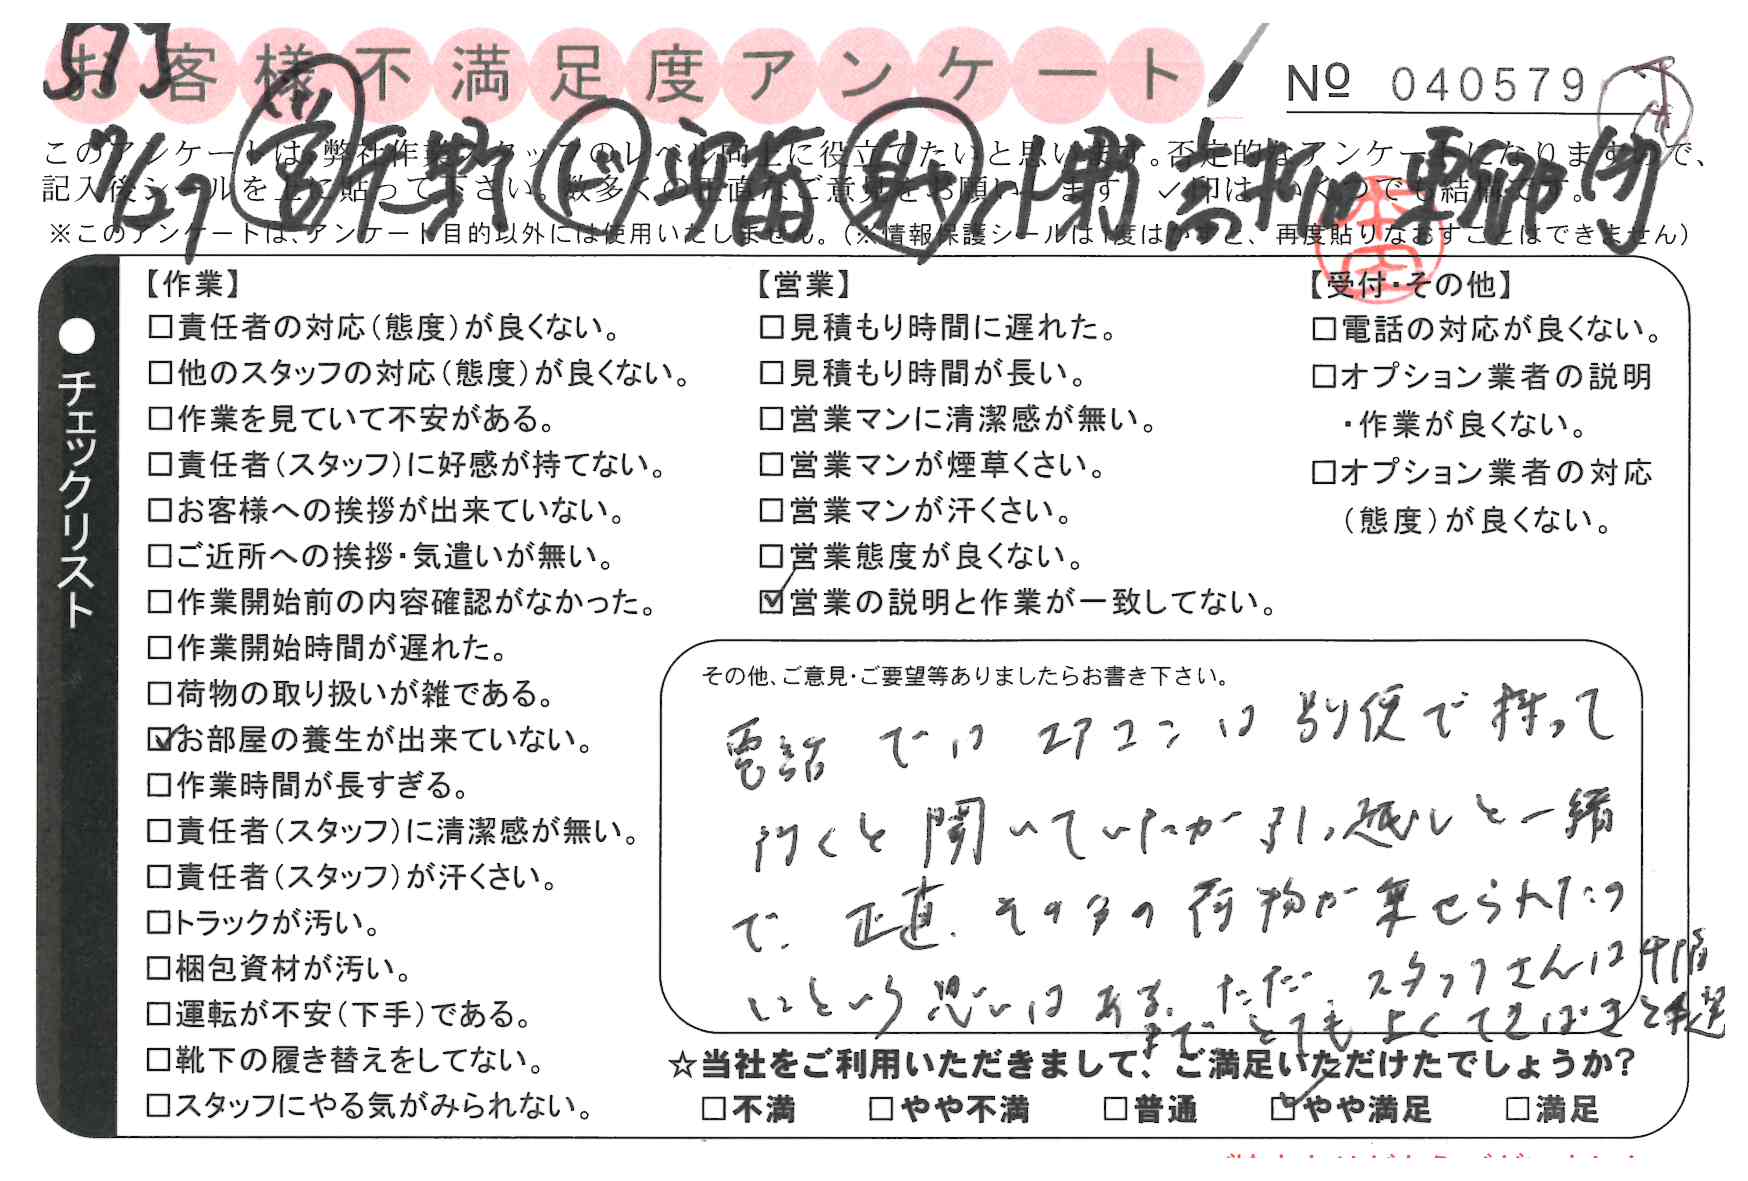 お客様不満足度アンケート
№ 040579
573
7/27 営 下野 ビ 斉藤 作 小菊 高柳 東郷
このアンケートは、弊社作業スタッフのレベル向上に役立てたいと思います。否定的なアンケートになりますので、
記入後シールを上に貼って下さい。数多くの正直なご意見をお願いします。✓印はいくつでも結構です。
※このアンケートは、アンケート目的以外には使用いたしません。（※情報保護シールは1度はがすと、再度貼りなおすことはできません）
●チェックリスト
【作業】
□責任者の対応（態度）が良くない。
□他のスタッフの対応（態度）が良くない。
□作業を見ていて不安がある。
□責任者（スタッフ）に好感が持てない。
□お客様への挨拶が出来ていない。
□ご近所への挨拶・気遣いが無い。
□作業開始前の内容確認がなかった。
□作業開始時間が遅れた。
□荷物の取り扱いが雑である。
☑お部屋の養生が出来ていない。
□作業時間が長すぎる。
□責任者（スタッフ）に清潔感が無い。
□責任者（スタッフ）が汗くさい。
□トラックが汚い。
□梱包資材が汚い。
□運転が不安（下手）である。
□靴下の履き替えをしてない。
□スタッフにやる気がみられない。
【営業】
□見積もり時間に遅れた。
□見積もり時間が長い。
□営業マンに清潔感が無い。
□営業マンが煙草くさい。
□営業マンが汗くさい。
□営業態度が良くない。
☑営業の説明と作業が一致してない。
【受付・その他】
□電話の対応が良くない。
□オプション業者の説明
・作業が良くない。
□オプション業者の対応
（態度）が良くない。
その他、ご意見・ご要望等ありましたらお書き下さい。
電話ではエアコンは別便で持って
行くと聞いていたが引っ越しと一緒
で、正直、その分の荷物が乗せられたの
にという思いはある。ただ スタッフさんは
まで とても よくてきぱきと
☆当社をご利用いただきまして、ご満足いただけたでしょうか？
□不満 □やや不満 □普通 ☑やや満足 □満足